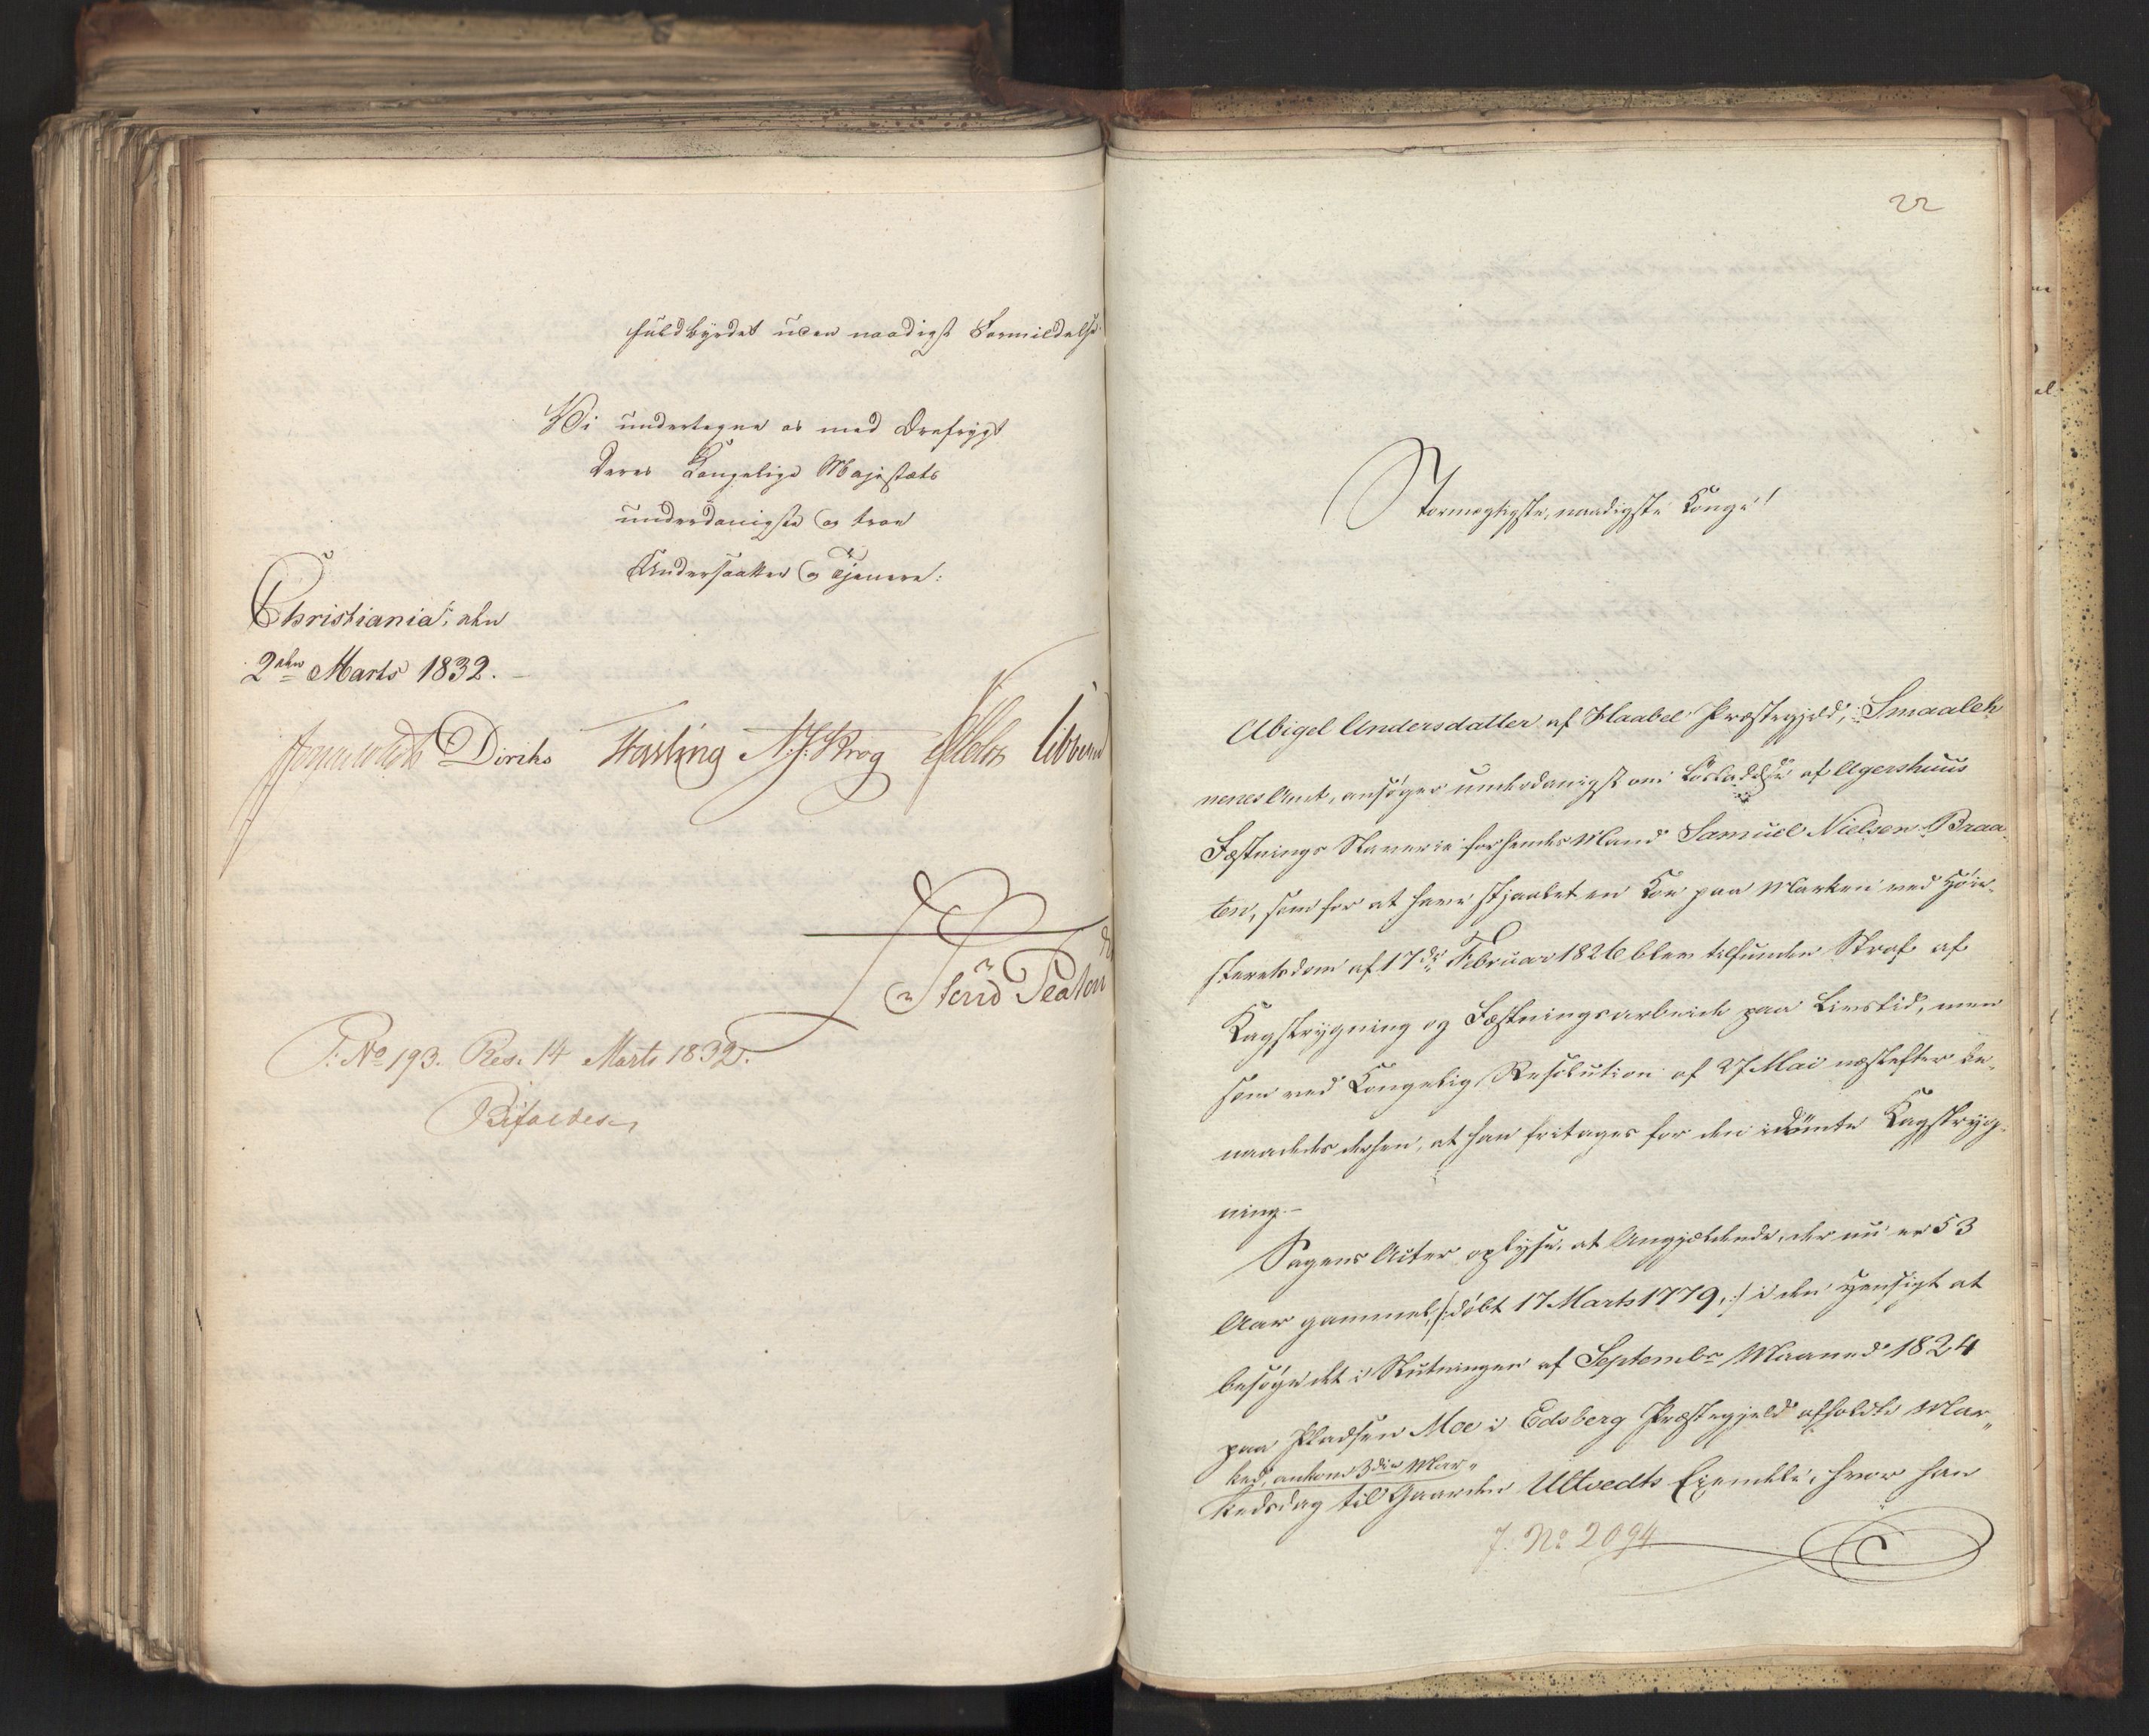 fuldbyrdet uden naadigst Formildelse.
Vi undertegne os med Ærefrygt
Deres Kongelige Majestæts
underdanigste og troe
Undersaatter og Tjenere:
Christiania, den
2den Marts 1832.
Diriks Fasting N. J. Krog
P: No 193. Res. 14 Marts 1832.
Bifaldes
22
Stormægtigste, naadigste Konge!
Abigel Andersdatter af Haabel Præstegjeld, Smaaleh
nenes Amt, ansøger underdanigst om Løsladelse af Agershuus
Fæstnings Slaverie for hendes Mand Samuel Nielsen Braa-
ten, som for at have stjaalet en Koe paa Marken ved Høie-
steretsdom af 17de Februar 1826 blev tilfunden Straf af
Kagstrygning og Fæstningsarbeide paa Livstid, men
som ved Kongelig Resolution af 27 Mai næstefter be-
naadedes derhen, at han fritages for den idømte Kagstryg-
ning.-
Sagens Acter oplyse, at Angjældende, der nu er 53
Aar gammel, /: døbt 17 Marts 1779, :/ i den Hensigt at
besøge det i Slutningen af Septembr Maaned 1824
paa Pladsen Moe i Edsberg Præstegjeld afholdte Mar-
ked, ankom 3die Mar-
kedsdag til Gaarden Ultvedts Eiendele, hvor han
J. No 2094